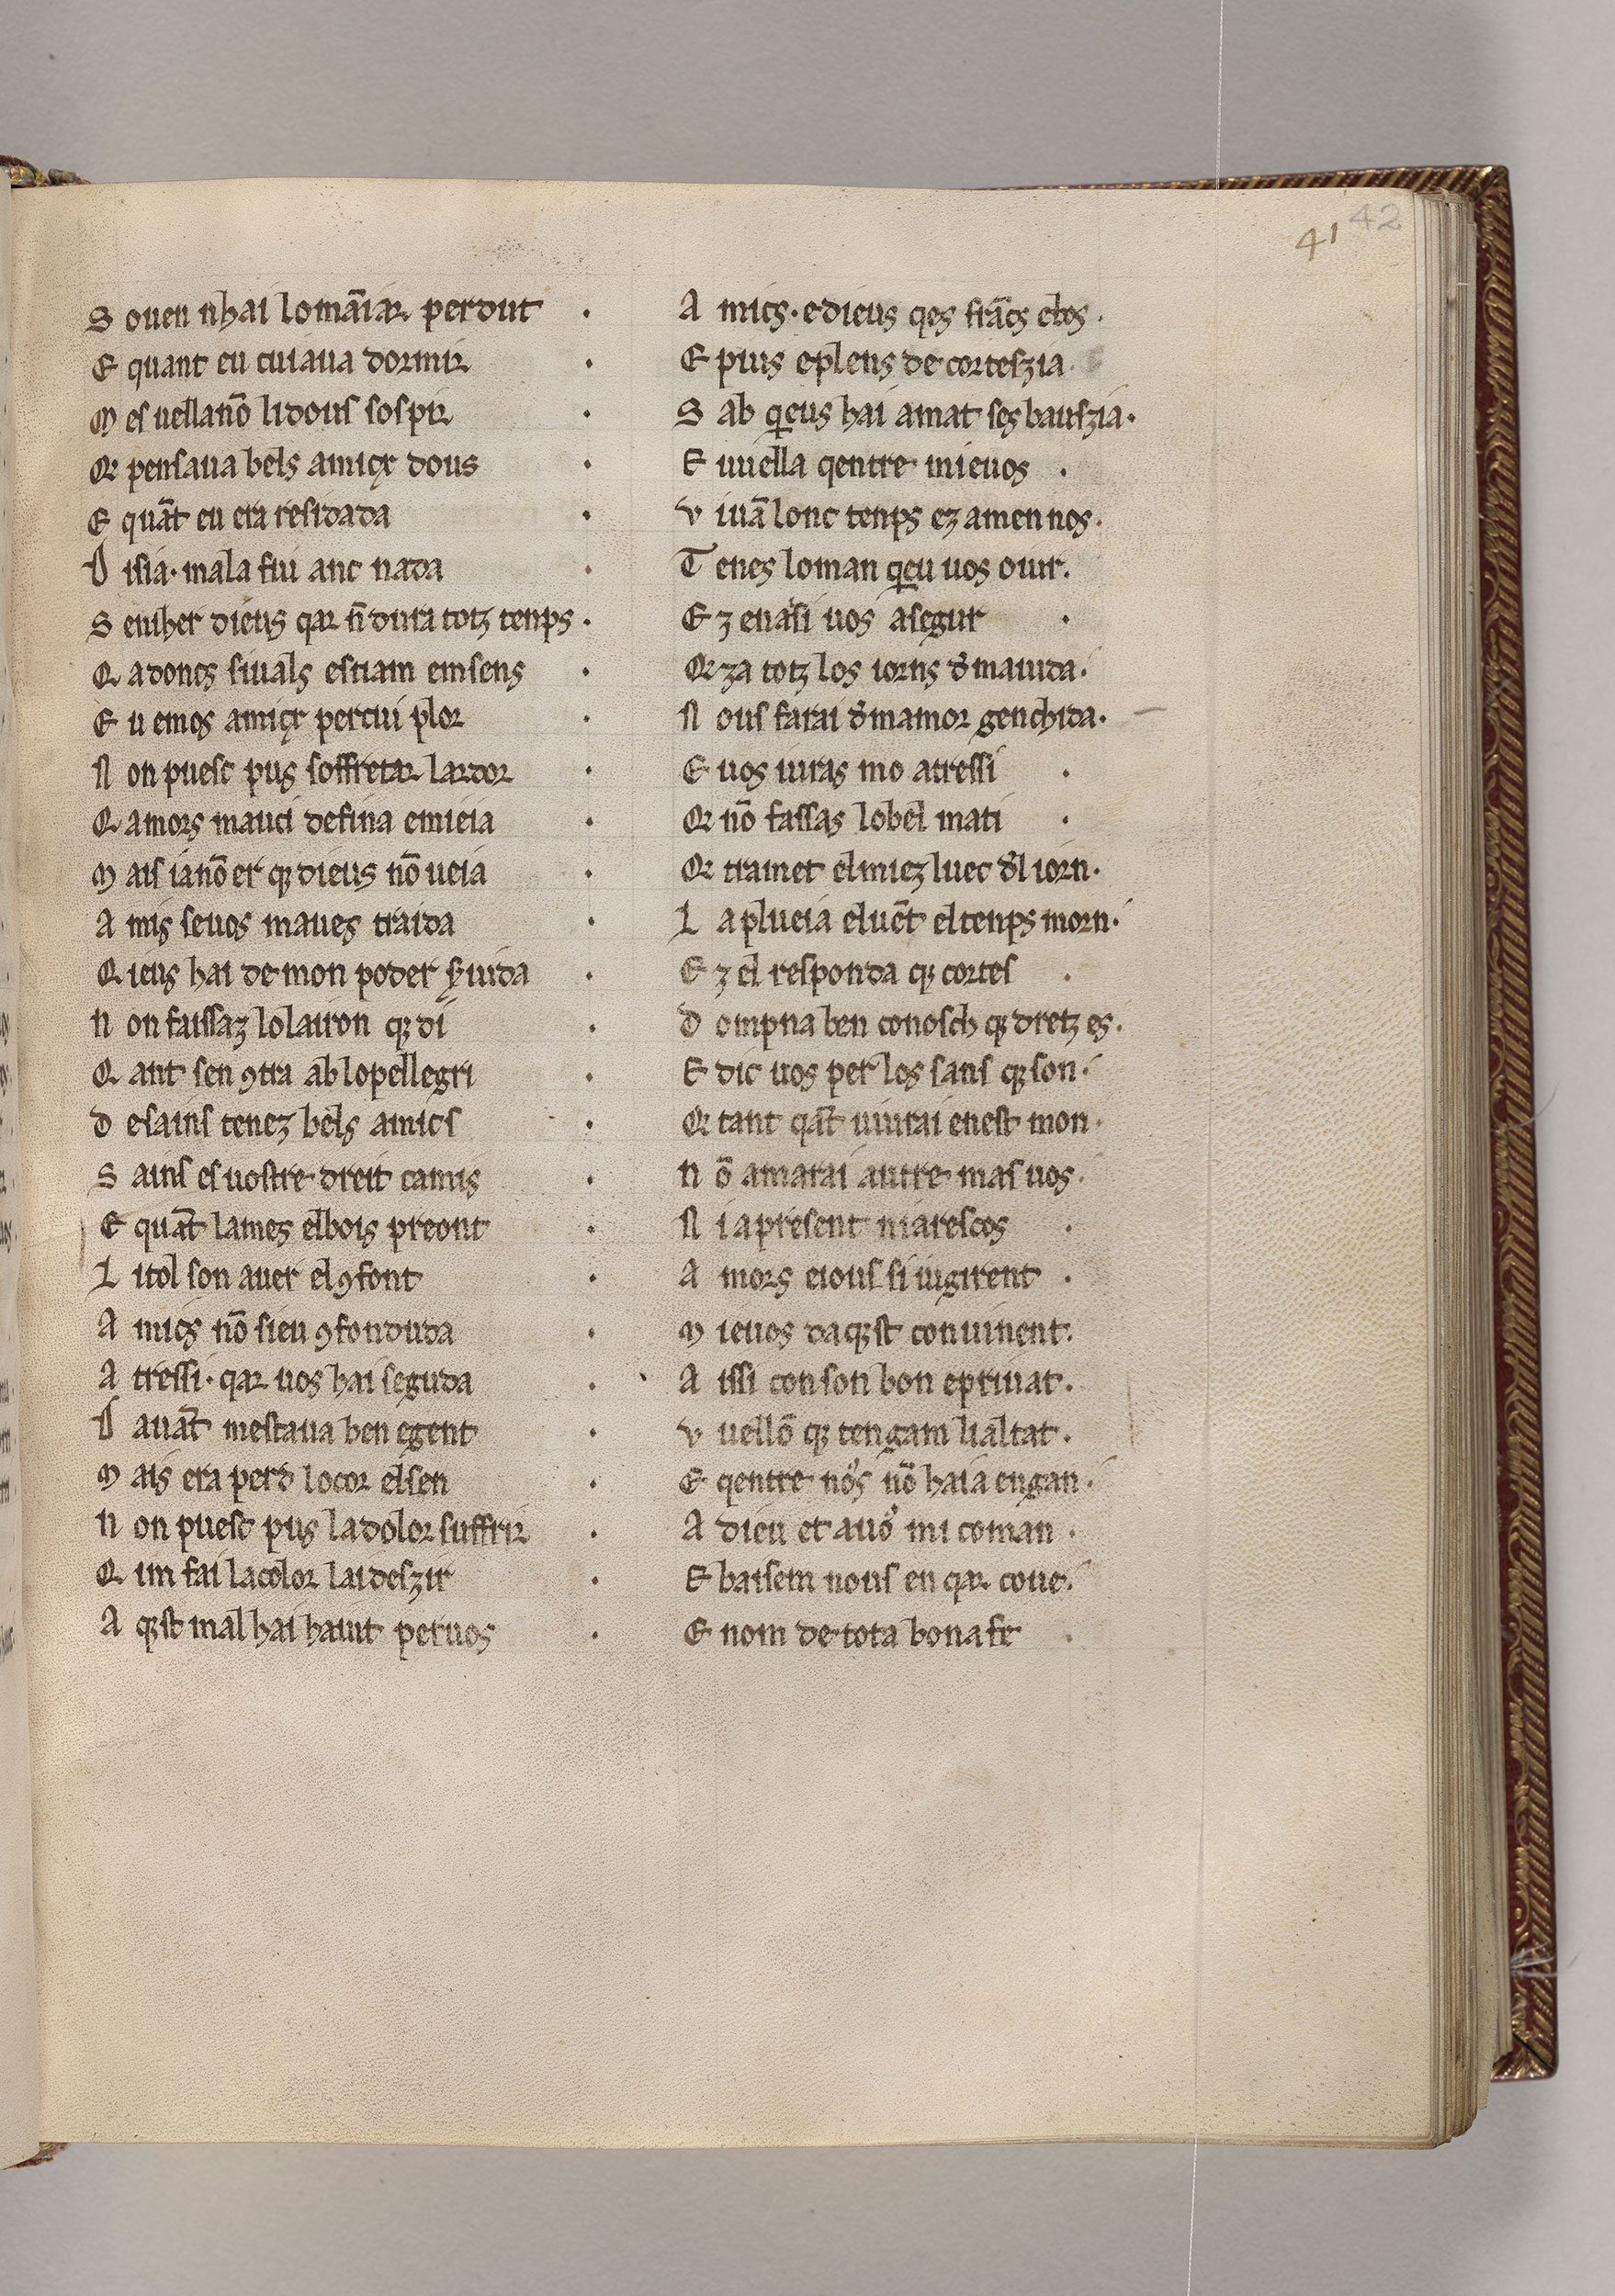 41 42
S ouen nhai lo mãiar perdut ·
E quant eu cuiaua dormir ·
M es uellanõ li dous sospir ·
Qe pensaua bels amics dous ·
E quãt eu era residada ·
D isia · mala fui anc nada ·
S enher dieus qar ñ dura totz tenps ·
Q adoncs siuals estiam emsens ·
E u emos amics per cui plor ·
N on puesc pus soffretar lardor ·
Q amors mauci de fina enueia ·
M ais ia nõ er qe dieus nõ ueia ·
A mis se uos maues traida ·
Q ieus hai de mon poder seruida ·
N on faissaz lo lairon qe di ·
Q ant sen ꝯtra ab lo pellegri ·
D e sains tenez bels amics ·
S ains es uostre dreit camis ·
E quãt lames el bois preont ·
L i tol son auer el ꝯfont ·
A mics nõ sieu ꝯfonduda ·
A tressi · qar uos hai seguda ·
D auãt mestaua ben e gent ·
M ais era perd lo cor el sen ·
N on puesc pus la dolor suffrir ·
Q im fai la color laideszir ·
A qest mal hai haiut per uos ·
A mics · e dieus qes frãcs e bos ·
E pius e plens de corteszia
S ab qeus hai amat ses bauszia ·
E uuella qentre mi e uos ·
V iuã lonc tenps ez amen nos ·
T enes lo man qeu uos oiur ·
E z enasi uos asegur ·
Qe za totz los iorns d̃ ma uida ·
N ous farai d̃ mamor genchida ·
E uos iuras mo atressi ·
Qe nõ fassas lo bel mati ·
Qe tramet el miez luec d̃l iorn ·
L a plueia el uẽt el tenps morn ·
E z el responda qe cortes ·
D ompna ben conosch qe dretz es ·
E dic uos per los sans qe son ·
Qe tant qãt uiurai en est mon ·
N õ amarai autre mas uos ·
N i a present ni a rescos ·
A mors e ious si iugirent ·
M i e uos daqest conuinent ·
A issi con son bon e priuat ·
V uellõ qe tengam lialtat ·
E qentre nos nõ haia engan ·
A dieu et a uos mi coman ·
E baisem nous en qar coue ·
E nom de tota bona fe ·